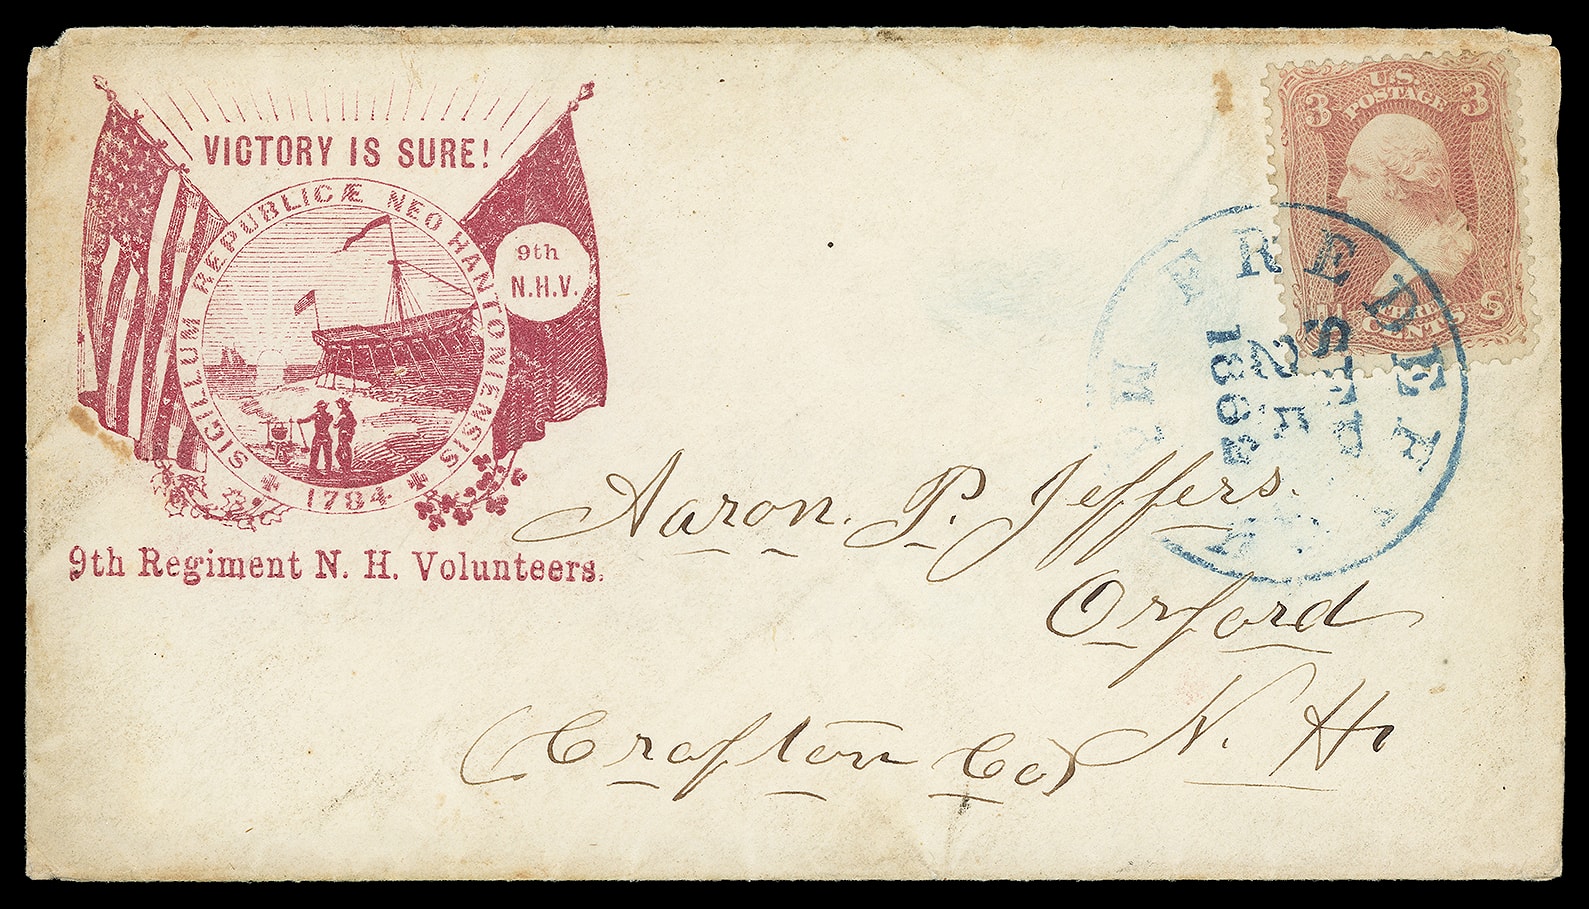 VICTORY IS SURE!
SIGILLUM REIPUBLICÆ NEO HANTONIENSIS
1784
9th
N.H.V.
9th Regiment N. H. Volunteers.
U.S.
POSTAGE
3 3
CENTS
FREDER
SEP
2
1862
Aaron. P. Jeffers.
Orford
(Crafton Co) N. H.